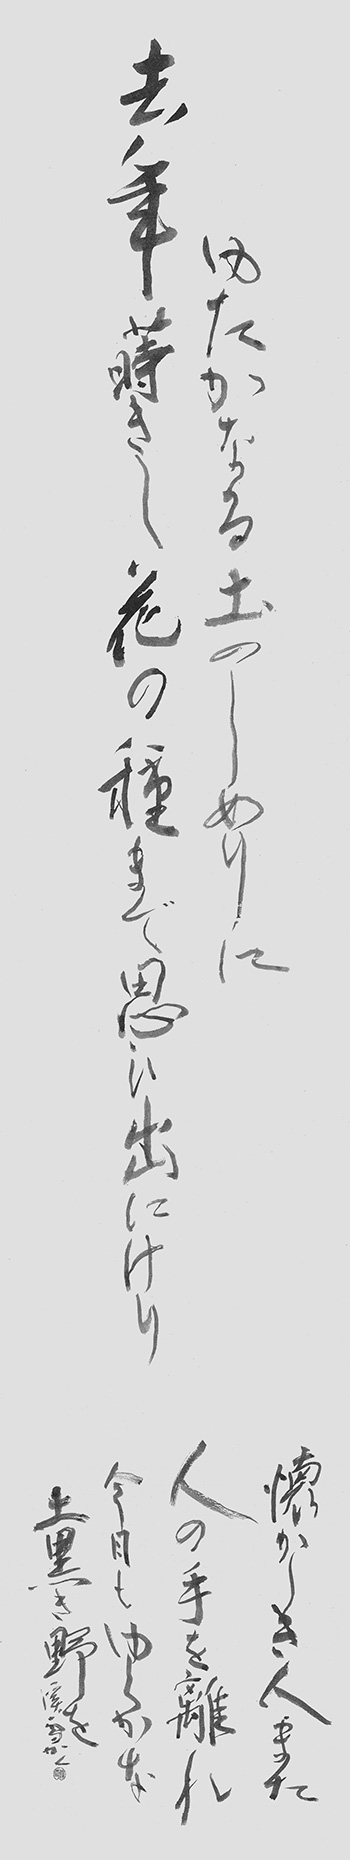 ゆたかなる土のしめりに
去年蒔きし花の種まで思ひ出にけり
懐かしき人また
人の手を離れ
今日もゆらかな
土黒き野を
溪雪かく